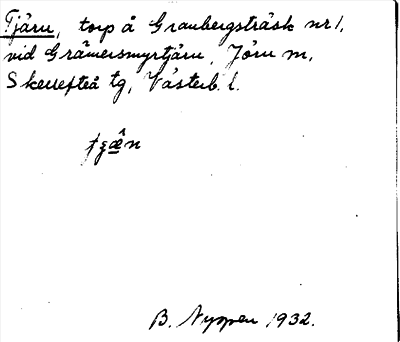 Tjärn, torp å Granbergsträsk nr 1,
vid Grämersmyrtjärn, Jörn sn,
Skellefteå tg, Västerb. l.
B. Nyspen 1932.